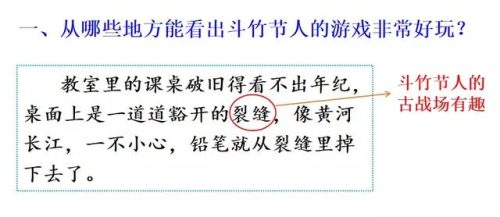 一、从哪些地方能看出斗竹节人的游戏非常好玩？
教室里的课桌破旧得看不出年纪，
桌面上是一道道豁开的裂缝，像黄河
长江，一不小心，铅笔就从裂缝里掉
下去了。
斗竹节人的
古战场有趣